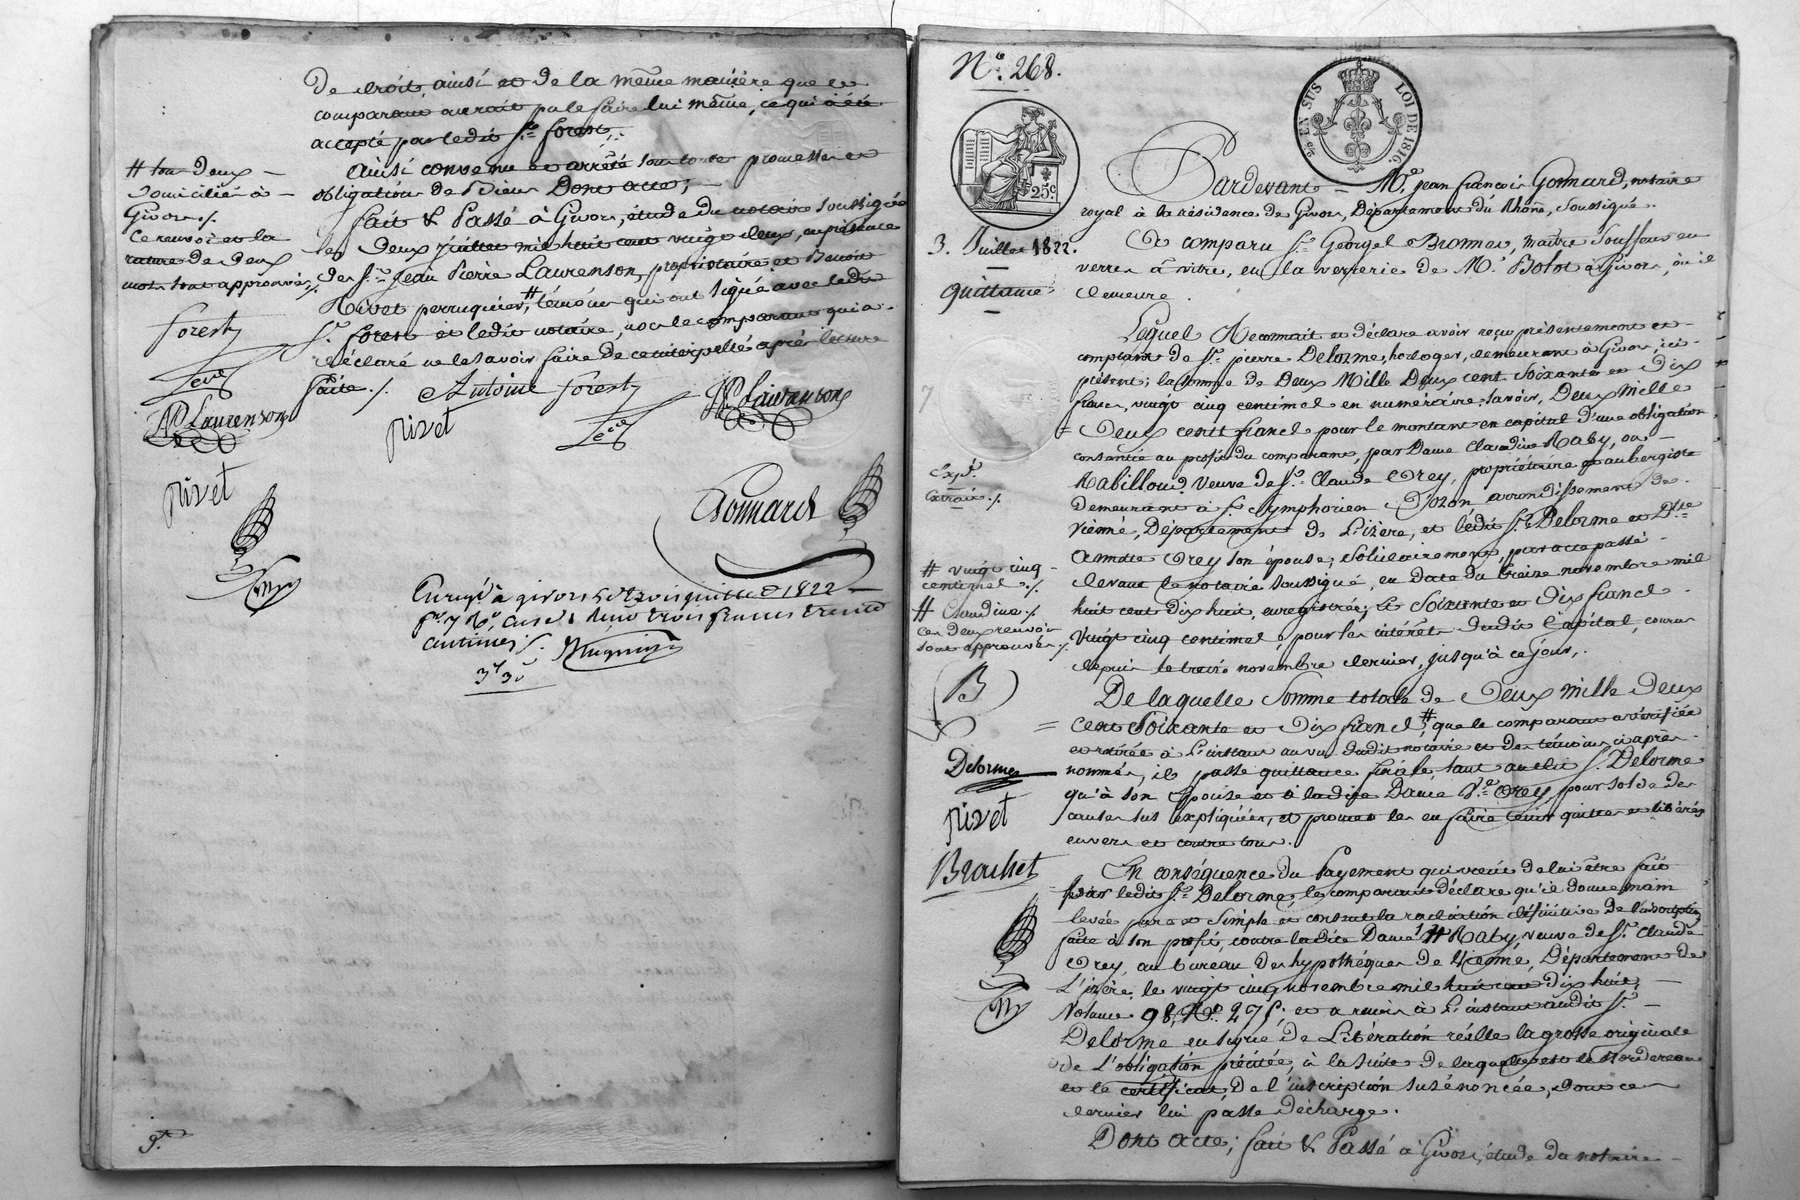 de droit, ainsi et de la même manière que le
comparant aurait pu le faire lui même, ce qui a été
accepté par ledit Sr. forest.
Ainsi convenu et arrêté sous toutes promesses et
obligations de Dieu Dont acte;
fait & Passé à Givors, étude du notaire soussigné
les deux juillet mil huit cent vingt deux, en présence
des Srs. Jean Pierre Laurenson, propriétaire et Benoit
Rivet perruquier, # témoins qui ont signé avec ledit
Sr. forest et ledit notaire, non le comparant qui a
déclaré ne le savoir faire de ce interpellé après lecture
faite ./.
# tous deux
domiciliés à
Givors ./.
Ce renvoi et la
rature de deux
mots sont approuvés ./.
Forest
JP Laurenson
rivet
Antoine forest
rivet
JP Laurenson
Gonnard
Enregé à givors le trois juillet 1822
fo. 7 Ro. Case 1 reçu trois francs trente
centimes ./.
3f 30
9e
No. 268.
25 EN SUS
LOI DE 1816.
25c.
3. Juillet 1822.
Quittance
Pardevant Me. jean françois Gonnard, notaire
royal à la résidence de Givors, Département du Rhône, soussigné.
A comparu Sr. Georges Bronner, maître souffleur en
verres à vitre, en la verrerie de Mr. Bolot à Givors, où il
demeure.
Lequel Reconnait et déclare avoir reçu présentement et
comptant de Sr. pierre Delorme, horloger, demeurant à Givors, ici
présent; la somme de Deux Mille Deux cent soixante et Dix
francs, vingt cinq centimes en numéraire: savoir, Deux mille
Deux cents francs pour le montant en capital d'une obligation
consentie au profit du comparant, par Dame Claudine Raby, ou
Rabilloud, Veuve de Sr. Claude Orey, propriétaire et aubergiste
demeurant à St. Symphorien d'ozon arrondissement de
vienne, Département de L'izère, et ledit Sr. Delorme et Dlle
Orey son épouse, solidairement, par acte passé
devant le notaire soussigné, en date du treize novembre mil
huit cent dix huit, enregistrée; Et Soixante et Dix francs
vingt cinq centimes, pour les intérêts dudit Capital, courus
depuis le treize novembre dernier, jusqu'à ce jour.
De laquelle Somme totale de Deux mille Deux
cent Soixante et Dix francs, # que le comparant a vérifiée
et retirée à l'instant au vu dudit notaire et des témoins ci après
nommés, il passe quittance finale tant audit Sr. Delorme
qu'à son épouse et à ladite Dame Ve. Orey, pour solde des
causes sus expliquées, et promet les en faire tenir quittes et libérés
envers et contre tous.
En conséquence du Payement qui vient de lui être fait
par ledit Sr. Delorme, le comparant déclare qu'il donne main
levée pure et simple et consent la radiation définitive de l'inscription
faite à son profit, contre ladite Dame # Raby, veuve de Sr. Claude
Orey, au bureau des hypothèques de Vienne, Département de
L'izère, le vingt cinq novembre mil huit cent dix huit,
Volume 98, No. 275; et a remis à l'instant audit Sr.
Delorme en signe de Libération réelle la grosse originale
de l'obligation précitée, à la suite de laquelle est le Bordereau
et le certificat, de l'inscription susénoncée, dont ce
dernier lui passe décharge.
Dont acte; fait & Passé à Givors, étude du notaire
Expé.
Extraite ./.
# vingt cinq
centimes ./.
# Claudine ./.
Ces deux renvois
sont approuvés ./.
B
Delorme
rivet
Brachet